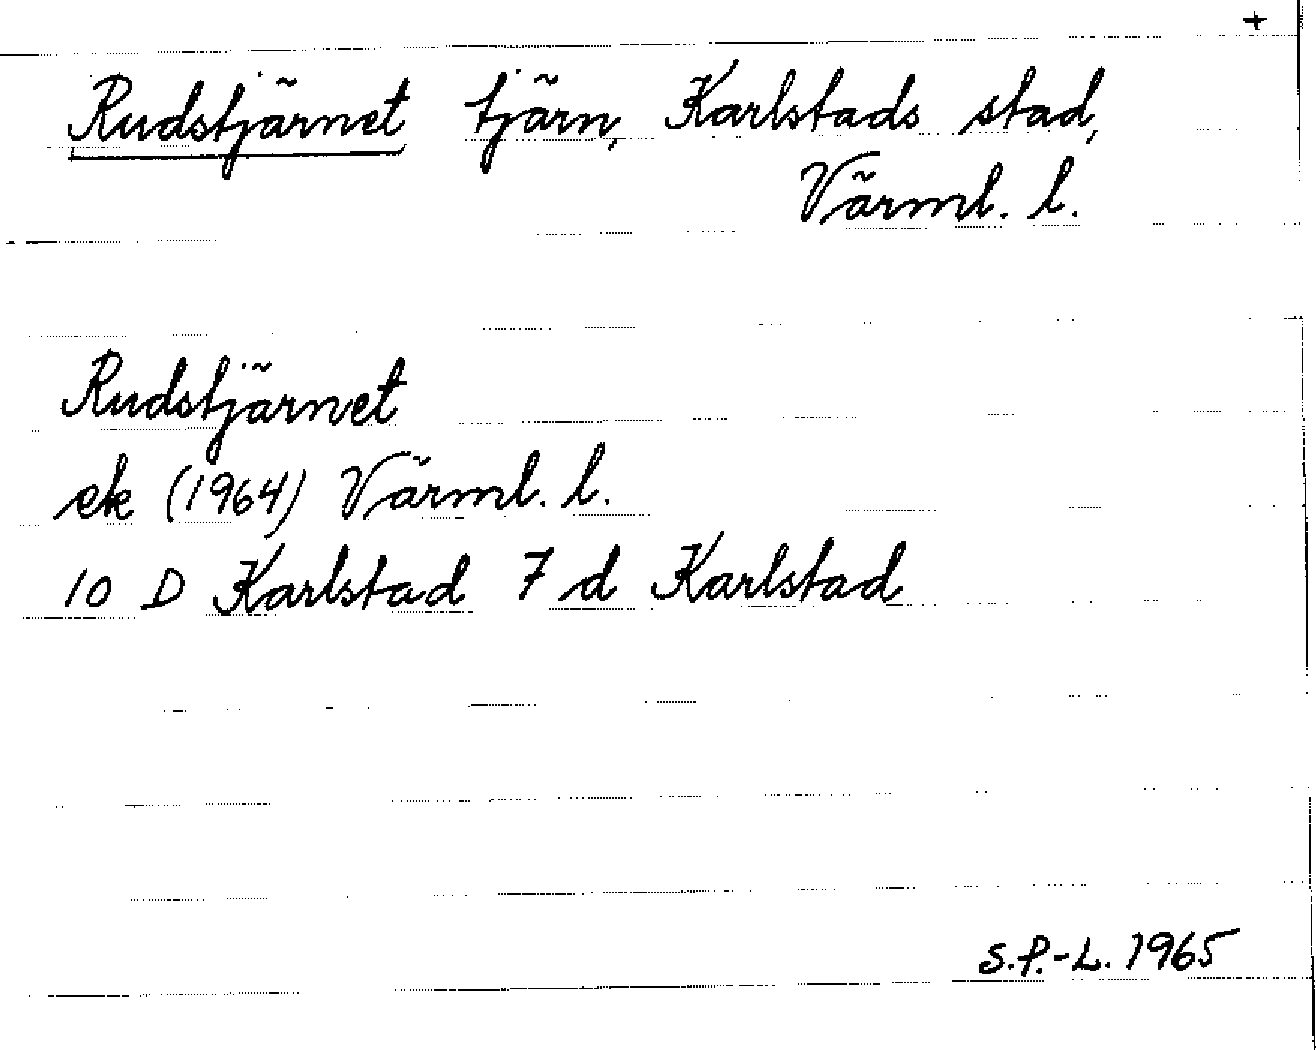 +
Rudstjärnet tjärn, Karlstads stad,
Värml. l.
Rudstjärnet
ek (1964) Värml. l.
10 D Karlstad 7 d Karlstad
S.P.-L. 1965